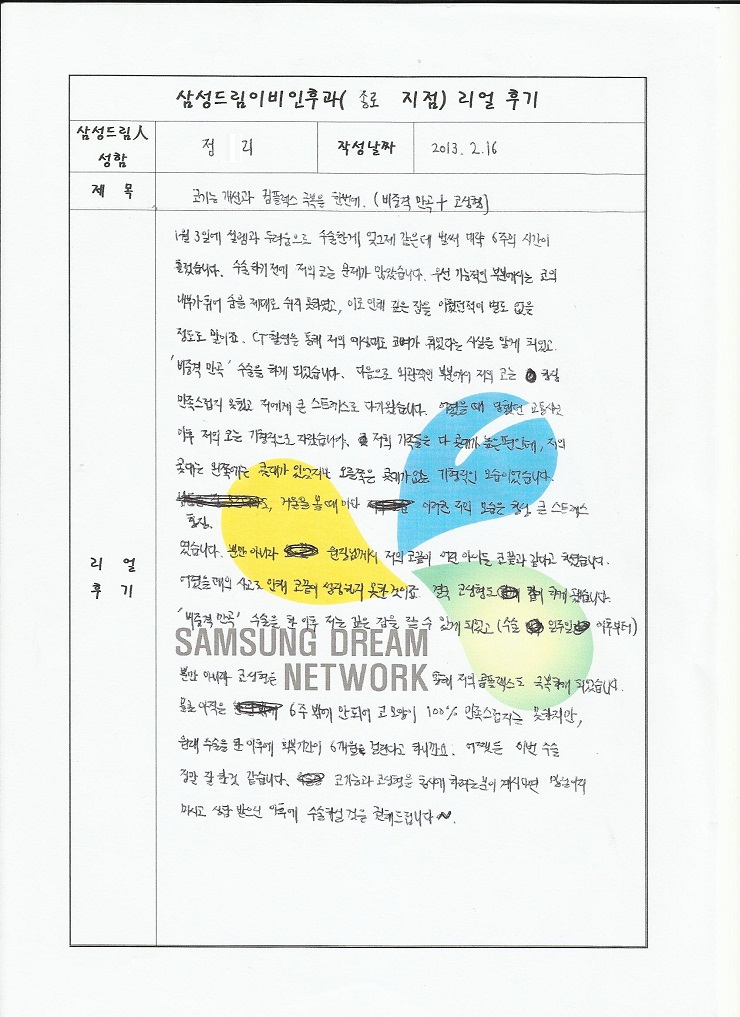 삼성드림이비인후과( 종로 지점) 리얼 후기
삼성드림人 성함
정 리
작성날짜
2013. 2. 16
제 목
코기능 개선과 컴플렉스 극복을 한번에. (비중격 만곡 + 코성형)
리 얼 후 기
1월 3일에 설렘과 두려움으로 수술한게 엊그제 같은데 벌써 대략 6주의 시간이
흘렀습니다. 수술하기 전에 저의 코는 문제가 많았습니다. 우선 기능적인 부분에서는 코의
내부가 휘어 숨을 제대로 쉬지 못하였고, 이로 인해 깊은 잠을 이뤘던적이 별로 없을
정도로 말이죠. CT촬영을 통해 저의 예상대로 코뼈가 휘었다는 사실을 알게 되었고.
'비중격 만곡' 수술을 하게 되었습니다. 다음으로 외관적인 부분에서 저의 코는 항상
만족스럽지 못했고 저에게 큰 스트레스로 다가왔습니다. 어렸을때 당했던 교통사고
이후 저의 코는 기형적으로 자랐습니다. 저희 가족들은 다 콧대가 높은편인데, 저의
콧대는 왼쪽에는 콧대가 있었지만 오른쪽은 콧대가 없는 기형적인 모습이었습니다.
거울을 볼 때마다 이러한 저의 모습은 항상 큰 스트레스
였습니다. 뿐만 아니라 원장님께서 저의 코끝이 어린 아이들 코끝과 같다고 하셨습니다.
어렸을 때의 사고로 인해 코끝이 성장하지 못한 것이죠. 결국 코성형도 같이 하게 됐습니다.
'비중격 만곡' 수술을 한 이후 저는 깊은 잠을 잘 수 있게 되었고 (수술 일주일 이후부터)
SAMSUNG DREAM
NETWORK
뿐만 아니라 코성형을 통해 저의 콤플렉스도 극복하게 되었습니다.
물론 아직은 6주 밖에 안되어 코 모양이 100% 만족스럽지는 못하지만,
원래 수술을 한 이후에 회복기간이 6개월 걸린다고 하니까요. 어쨌든 이번 수술
정말 잘 한것 같습니다. 코기능과 코성형을 동시에 하려는분이 계시다면 망설이지
마시고 상담 받으신 이후에 수술하실 것을 권해드립니다~.